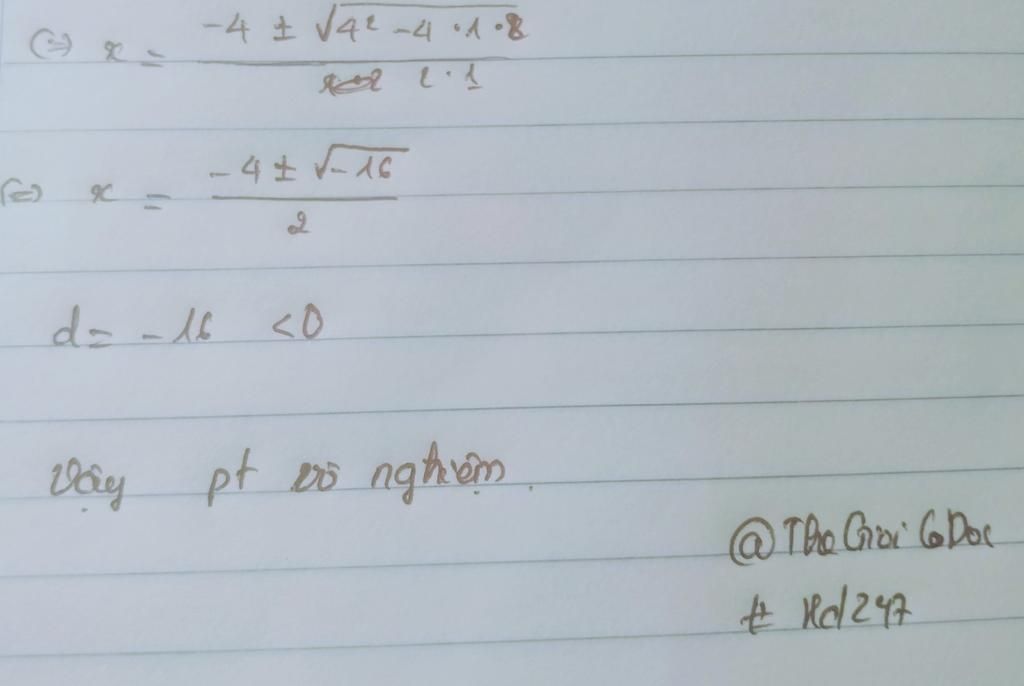 (=) x = (-4 ± √(4² - 4 · 1 · 8)) / (2 · 1)
(=) x = (-4 ± √(-16)) / 2
d = -16 < 0
Vậy pt vô nghiệm.
@ThoGioiCoDoc
# Hd247